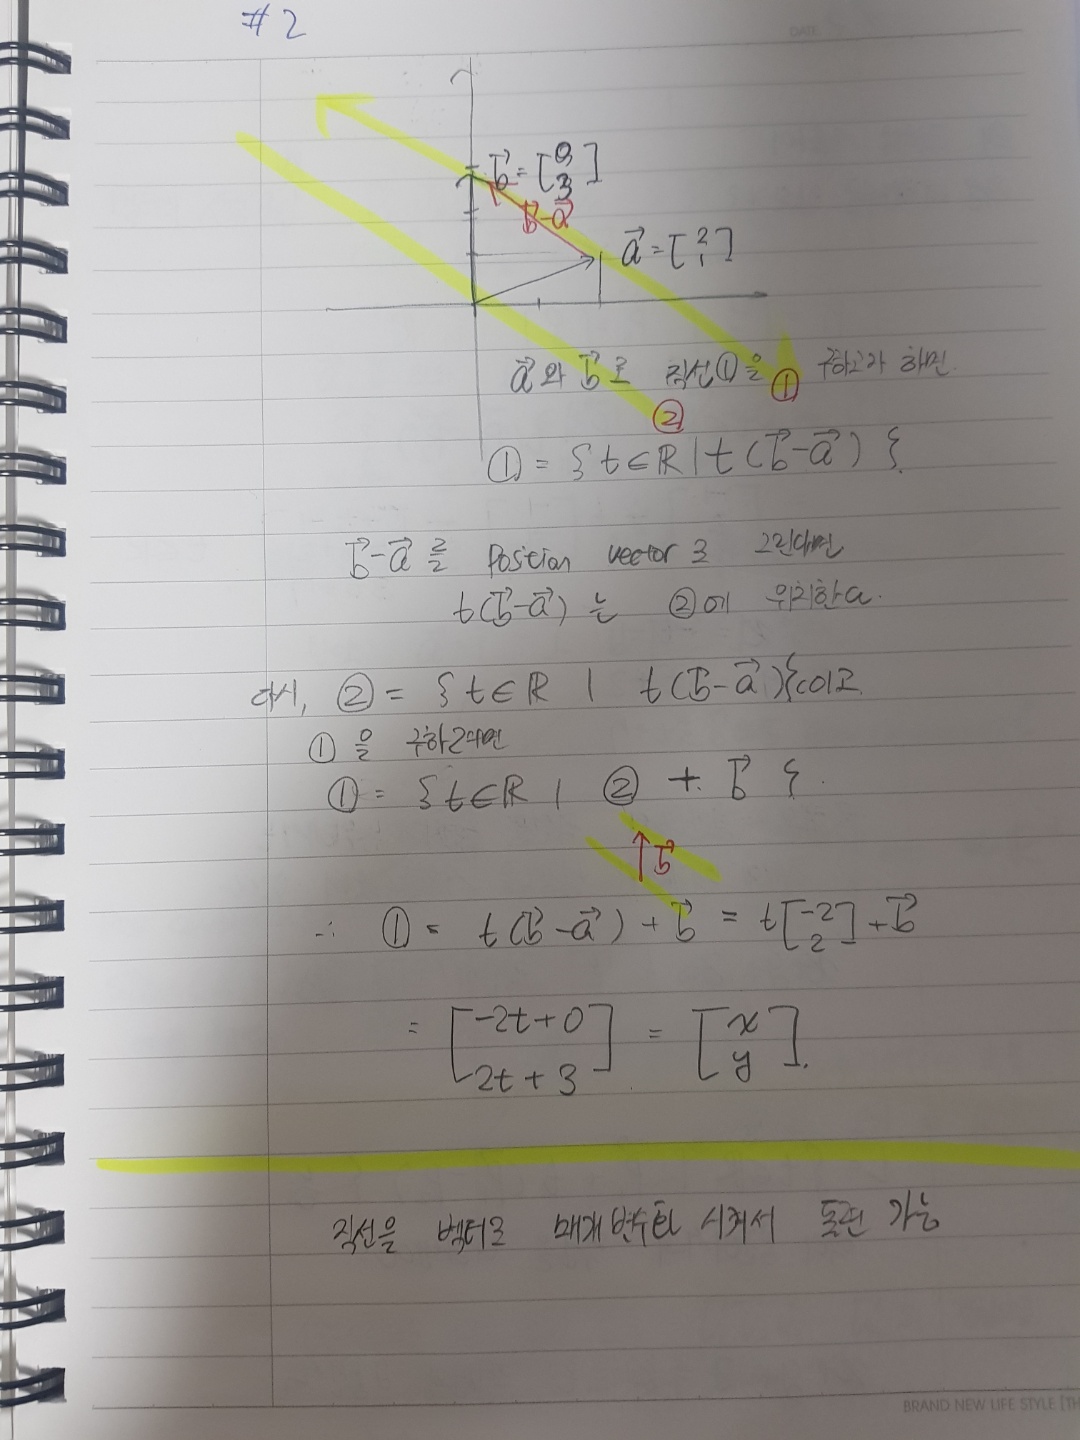 # 2
DATE
b⃗ = [0, 3]
b⃗-a⃗
a⃗ = [2 1]
a⃗ 와 b⃗로 직선①을 구하고자 하면
①
②
① = { t∈ℝ | t(b⃗-a⃗) }
b⃗-a⃗ 를 position vector로 그린다면
t(b⃗-a⃗) 는 ②에 위치한다.
다시, ② = { t∈ℝ | t(b⃗-a⃗)} 이고
① 을 구하고자면
① = { t∈ℝ | ② + b⃗ }.
b⃗
∴ ① = t(b⃗-a⃗) + b⃗ = t[-2 2] + b⃗
= [-2t+0 2t+3] = [x y].
직선을 벡터로 매개변수화 시켜서 표현 가능
BRAND NEW LIFE STYLE [TH